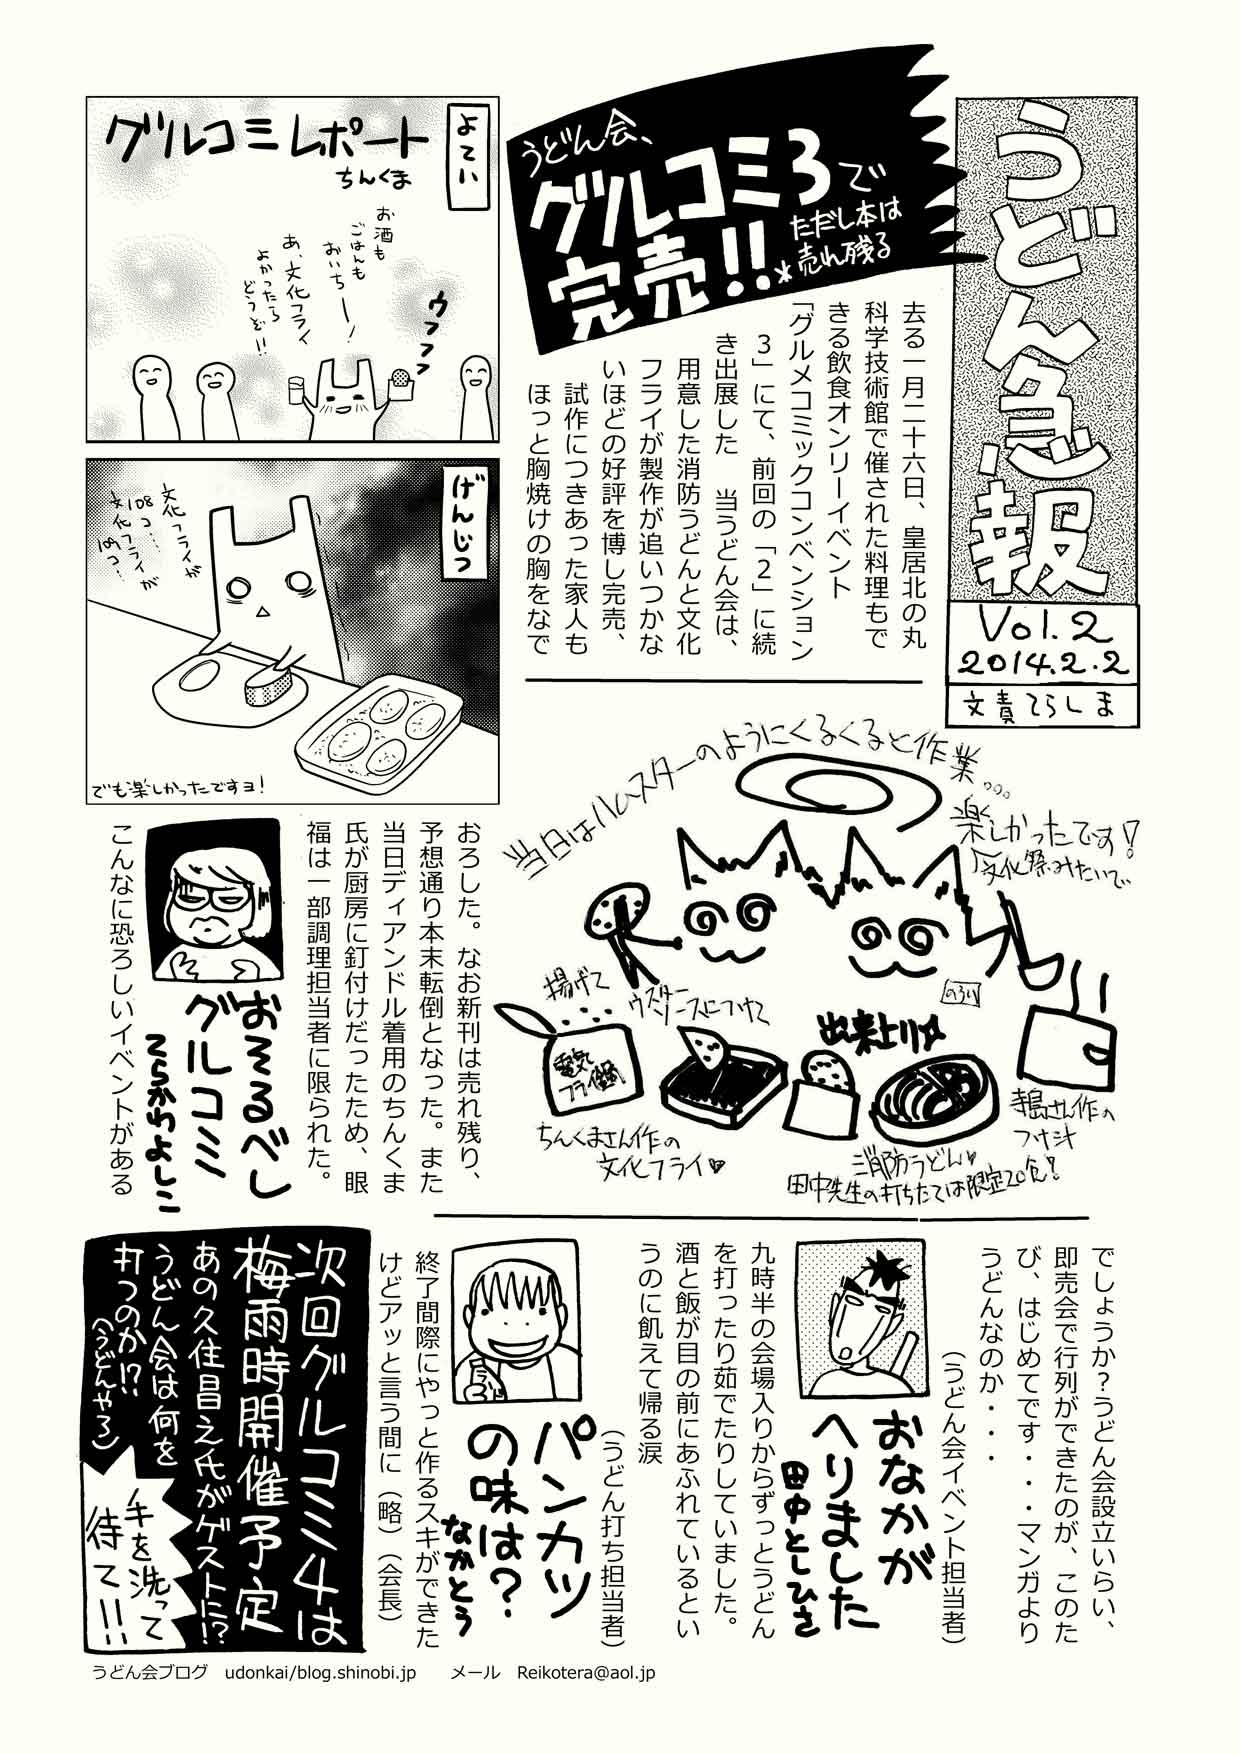 うどん急報
Vol.2
2014.2.2
文責てらしま
うどん会、
グルコミ3で
完売!!
*ただし本は
売れ残る
去る一月二十六日、皇居北の丸
科学技術館で催された料理もで
きる飲食オンリーイベント
「グルメコミックコンベンション
3」にて、前回の「2」に続
き出展した　当うどん会は、
用意した消防うどんと文化
フライが製作が追いつかな
いほどの好評を博し完売、
試作につきあった家人も
ほっと胸焼けの胸をなで
よてい
グルコミレポート
ちんくま
お酒も
ごはんも
おいちー!
あ、文化フライ
よかったら
どうぞ!!
ウフフフ
げんじつ
文化フライが
108コ…
文化フライが
109コ…
でも楽しかったですヨ!
当日はハムスターのようにくるくると作業…
楽しかったです!
文化祭みたいで
のろい
揚げて
ウスターソースにつけて
出来上り☆
電気
フライ鍋
ちんくまさん作の
文化フライ♥
消防うどん♥
田中先生の打ちたては限定20食!
寺島さん作の
フサ汁
おろした。なお新刊は売れ残り、
予想通り本末転倒となった。また
当日ディアンドル着用のちんくま
氏が厨房に釘付けだったため、眼
福は一部調理担当者に限られた。
おそるべし
グルコミ
てらかわよしこ
こんなに恐ろしいイベントがある
でしょうか？うどん会設立いらい、
即売会で行列ができたのが、このた
び、はじめてです・・・マンガより
うどんなのか・・・
（うどん会イベント担当者）
おなかが
へりました
田中としひさ
九時半の会場入りからずっとうどん
を打ったり茹でたりしていました。
酒と飯が目の前にあふれているとい
うのに飢えて帰る涙
（うどん打ち担当者）
パンカツ
の味は?
なかとう
終了間際にやっと作るスキができた
けどアッと言う間に（略）（会長）
次回グルコミ4は
梅雨時開催予定
あの久住昌之氏がゲストに!?
うどん会は何を
打つのか!?
(うどんやろ)
ノキを洗って
待て!!
うどん会ブログ　udonkai/blog.shinobi.jp　　メール　Reikotera@aol.jp